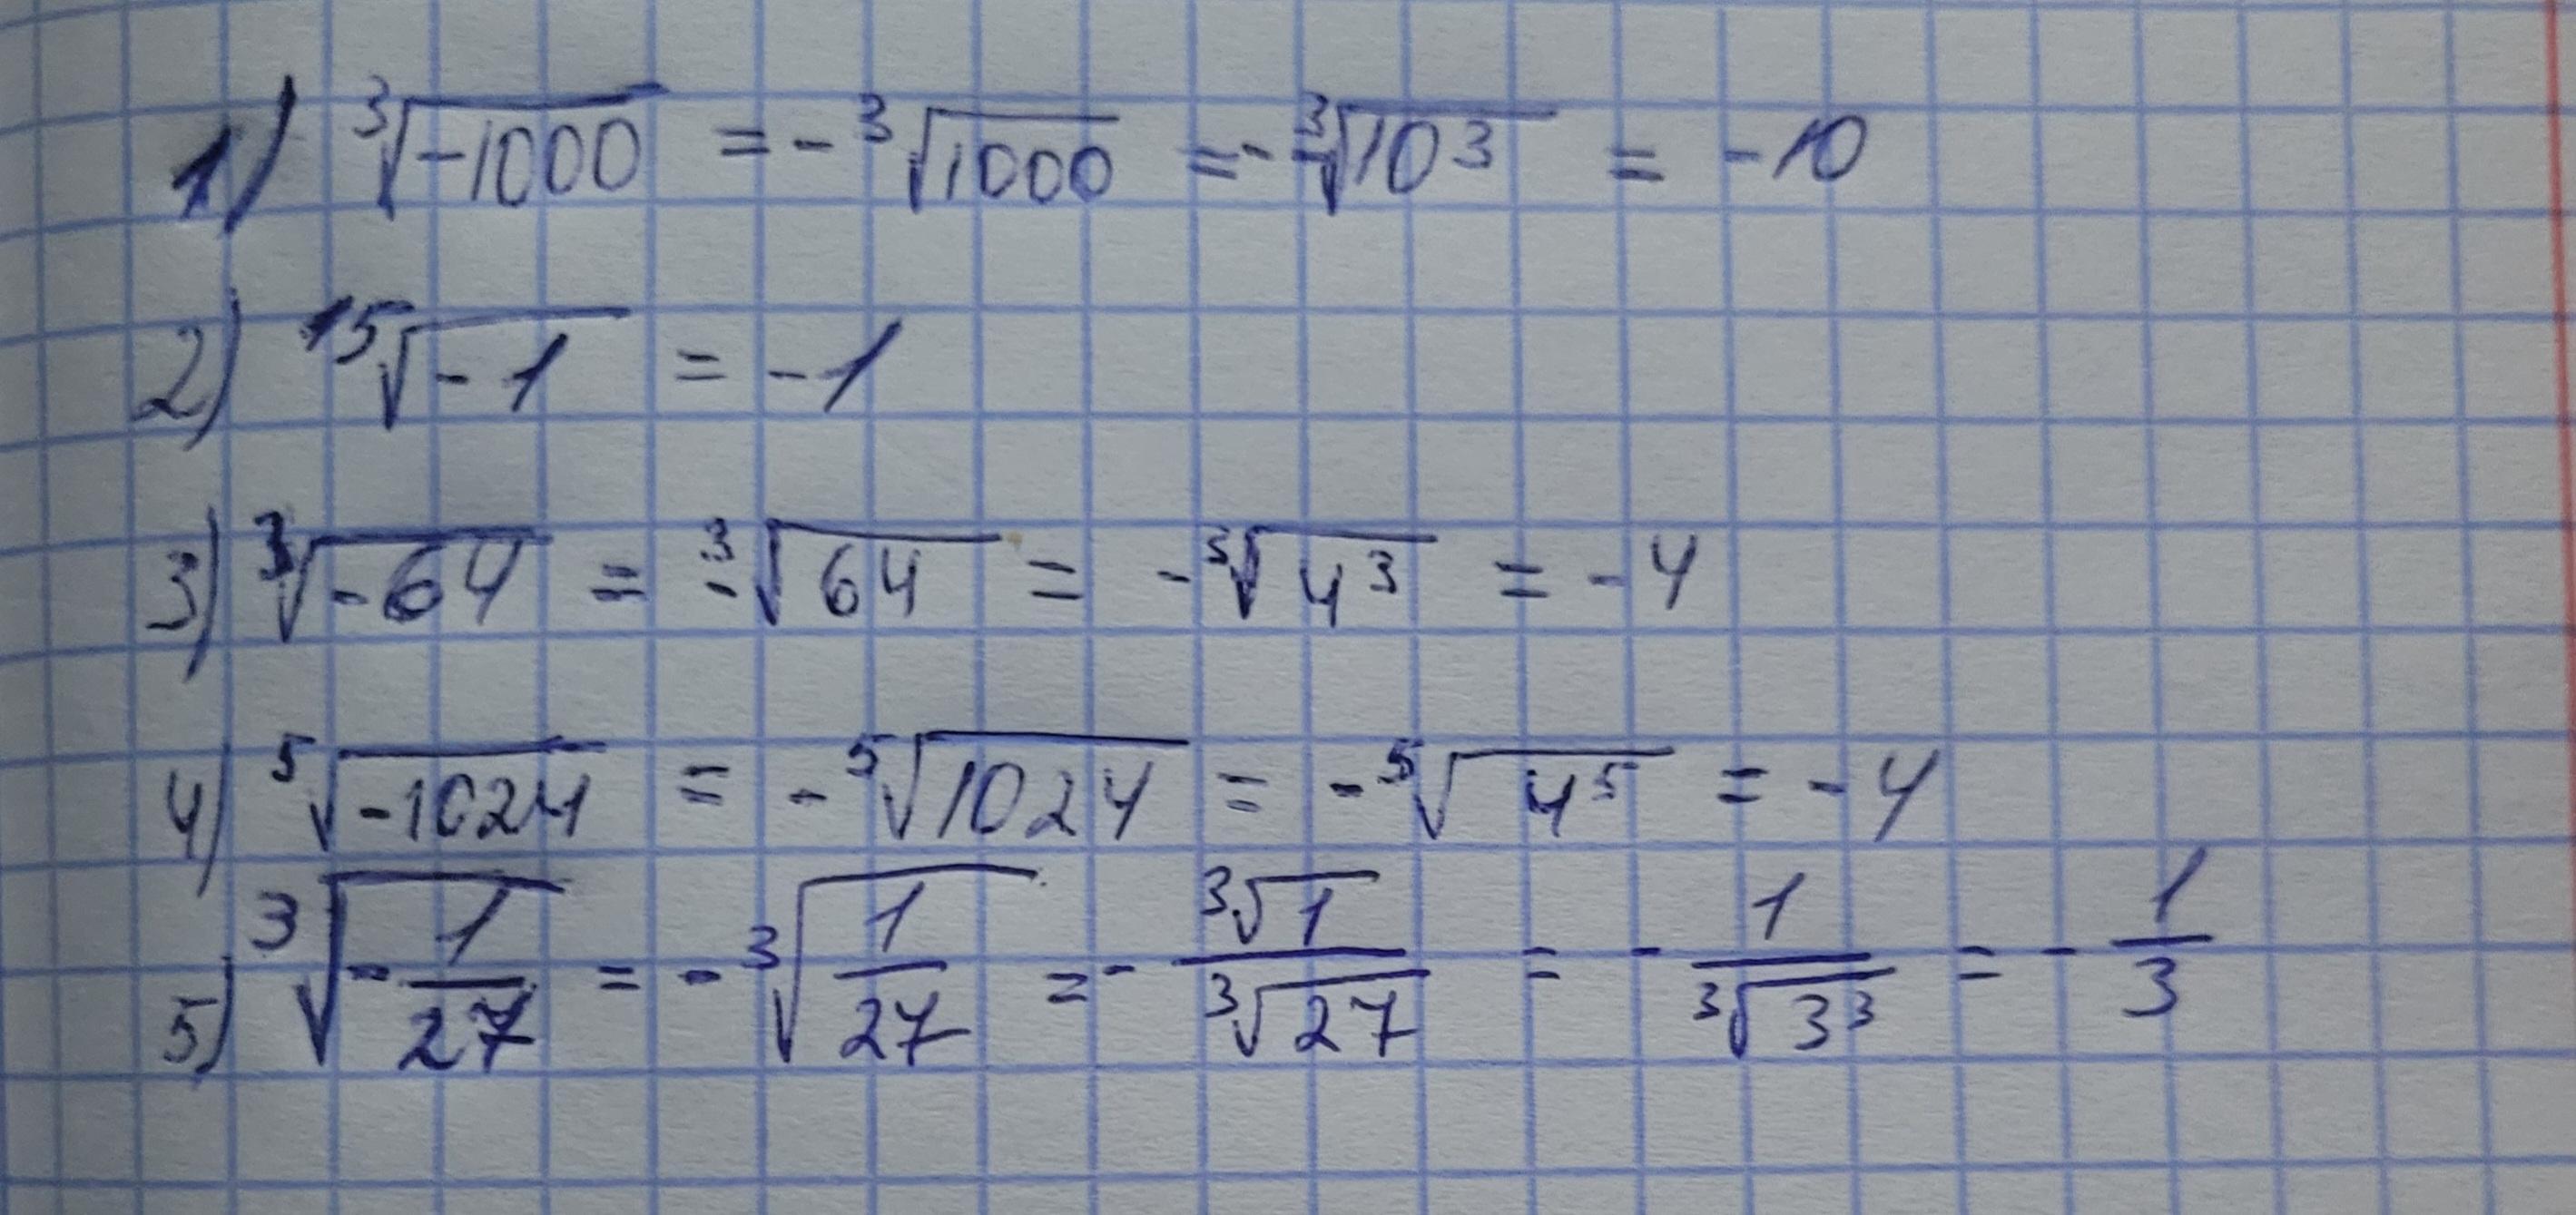 1) ∛(-1000) = -∛1000 = -∛10³ = -10
2) ¹⁵√-1 = -1
3) ∛(-64) = -∛64 = -∛4³ = -4
4) ⁵√-1024 = -⁵√1024 = -⁵√4⁵ = -4
5) ∛(-1/27) = -∛(1/27) = -∛1/∛27 = -1/∛3³ = -1/3